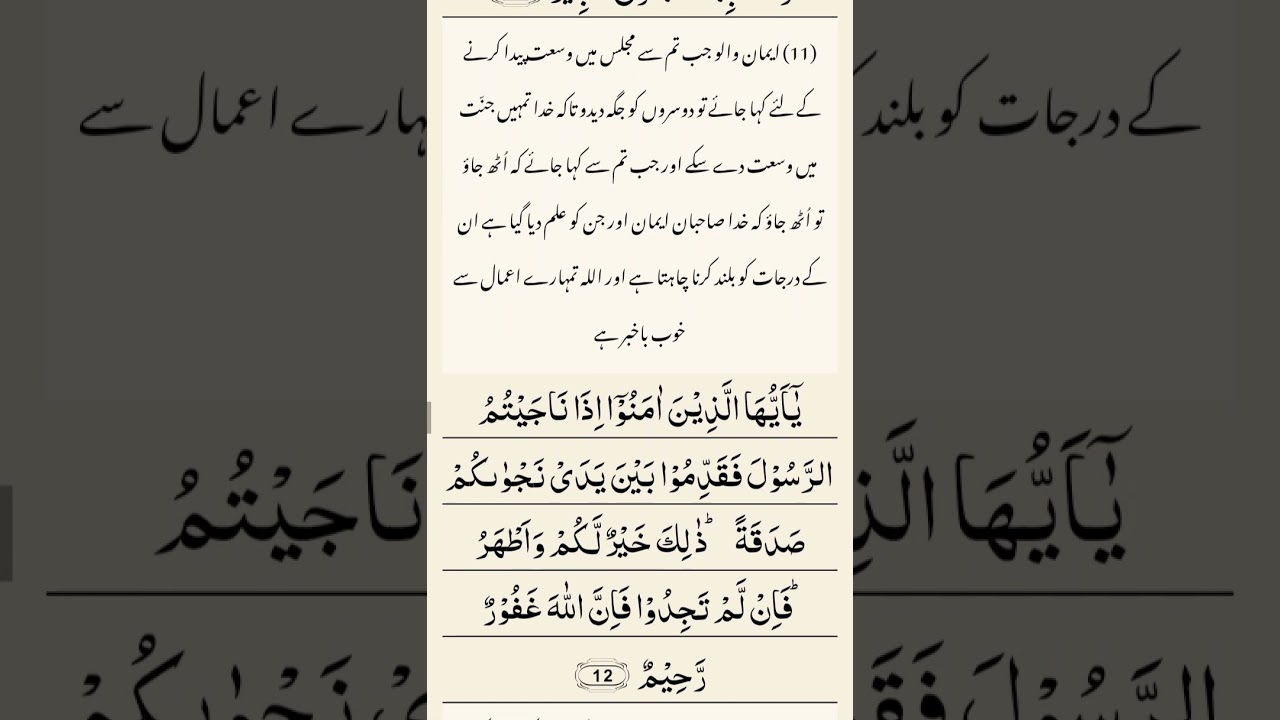 (11) ایمان والو جب تم سے مجلس میں وسعت پیدا کرنے
کے لئے کہا جائے تو دوسروں کو جگہ دیدو تاکہ خدا تمہیں جنّت
میں وسعت دے سکے اور جب تم سے کہا جائے کہ اُٹھ جاؤ
تو اُٹھ جاؤ کہ خدا صاحبان ایمان اور جن کو علم دیا گیا ہے ان
کے درجات کو بلند کرنا چاہتا ہے اور اللہ تمہارے اعمال سے
خوب باخبر ہے
يٰۤاَيُّهَا الَّذِيْنَ اٰمَنُوْۤا اِذَا نَاجَيْتُمُ
الرَّسُوْلَ فَقَدِّمُوْا بَيْنَ يَدَىْ نَجْوٰٮكُمْ
صَدَقَةً ؕ ذٰلِكَ خَيْرٌ لَّكُمْ وَاَطْهَرُ
ؕ فَاِنْ لَّمْ تَجِدُوْا فَاِنَّ اللّٰهَ غَفُوْرٌ
رَّحِيْمٌ 12